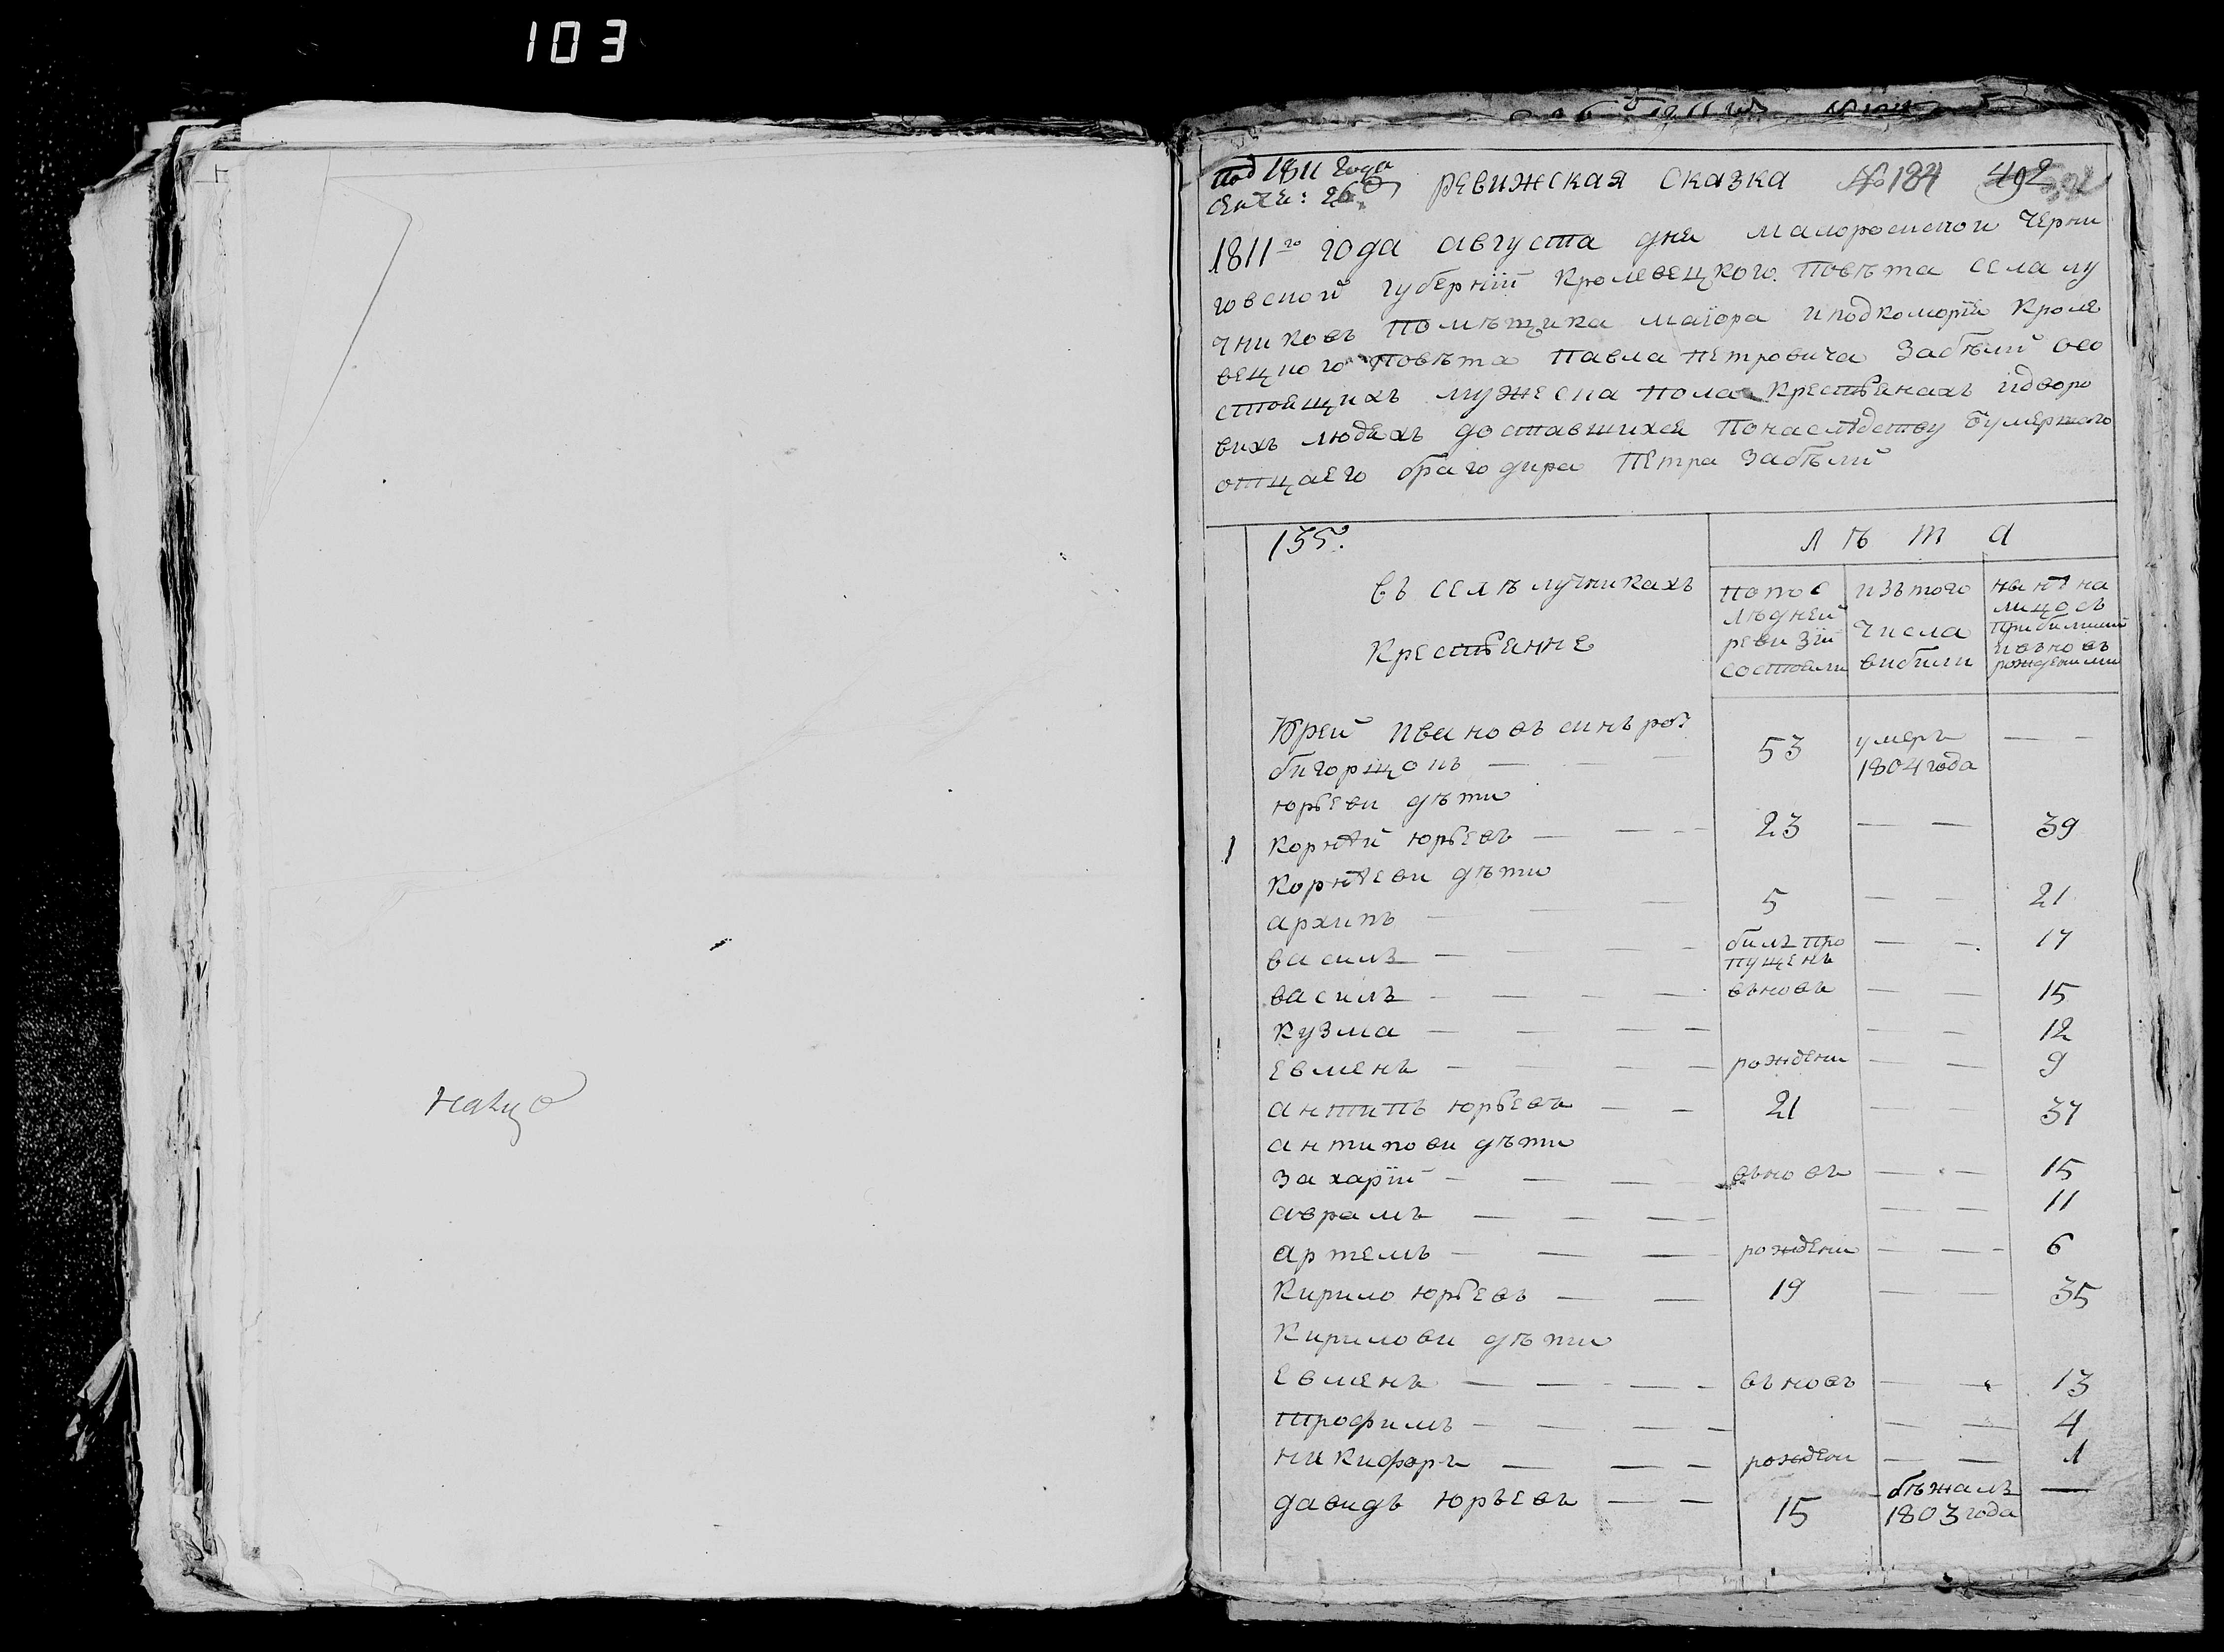 103
под 1811 года
Сенте: 26
ревижская сказка №184 492
1811го года августа дня малоросиской Черни
говской губернїи Кролевецкого Повѣта села лу
чниковъ Помѣщика маїора и подкоморїя Кроле
вецкого Повѣта Павла Петровича Забѣли осо
стоящихъ мужеска пола Крестьянахъ и дворо
вихъ людяхъ доставшихся Понаслѣдству
отца его брагодира Петра Забѣли
155.
лѣта
въ селѣ лучникахъ
Крестьянне
По пос
лѣдней
ревизїи
состояли
изъ того
числа
вибили
нынѣ на
лицо съ
прибилими
рожденими
Юрей Ивановъ синъ
53 умеръ — —
1804 года
юрьеви дѣти
1 Корнѣй юрьевъ — — — 23 — — 39
Корнѣеви дѣти
архипъ — — — 5 — — 21
василь — — — билъ про — — 17
пущенъ
василь — — — — вновь — — 15
Кузма — — — — — — 12
Евменъ — — — — рождени — — 9
антипъ юрьевъ — — 21 — — 37
антипови дѣти
Захарїй — — — вновь — — 15
аврамъ — — — — — — 11
артемъ — — — рождени — — 6
Кирило юрьевъ — — 19 — — 35
Кирилови дѣти
Евменъ — — — — вновь — — 13
Трофимъ — — — — — — 4
никифоръ — — — рождени — — 1
давидъ юрьевъ — — 15 бѣжалъ —
1803 года